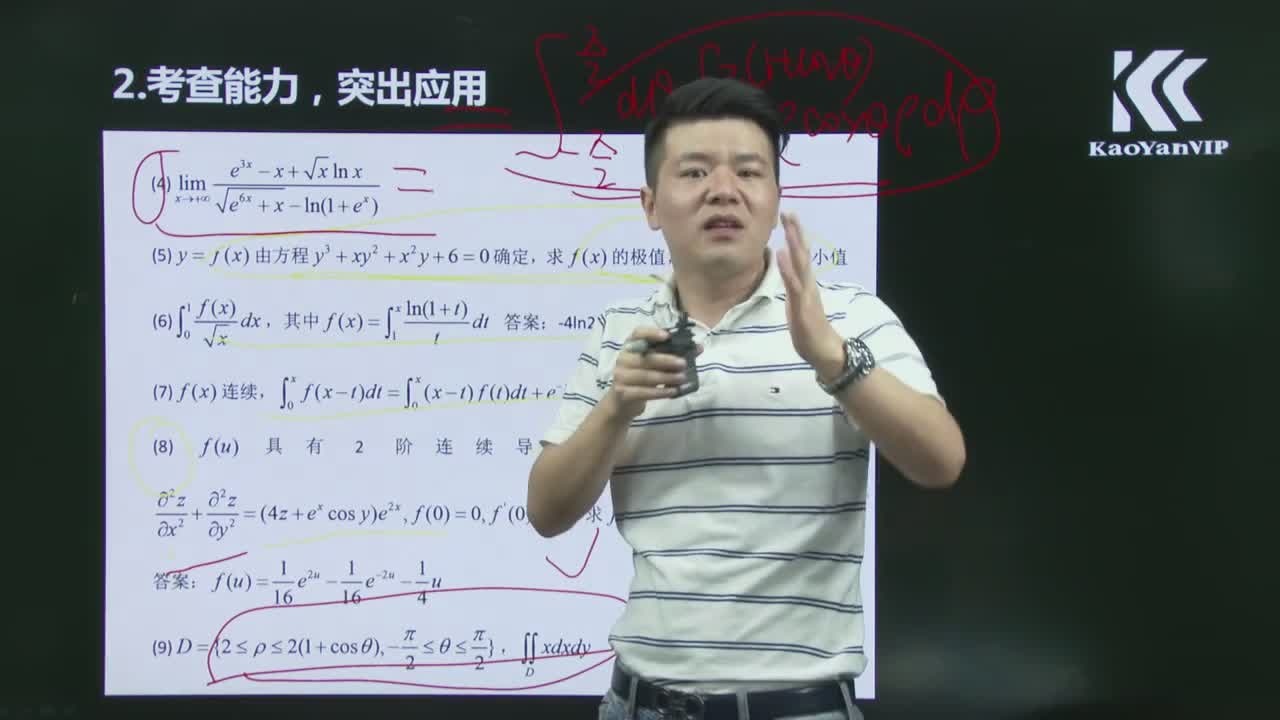 2.考查能力，突出应用
KaoYanVIP
(4) lim x→+∞ (e^{3x} − x + √x ln x) / (√(e^{6x} + x) − ln(1 + e^x)) =
(5) y = f(x) 由方程 y³ + xy² + x²y + 6 = 0 确定，求 f(x) 的极值 小值
(6) ∫₀¹ f(x)/√x dx，其中 f(x) = ∫₁ˣ ln(1+t)/t dt 答案：-4ln2
(7) f(x) 连续，∫₀ˣ f(x−t)dt = ∫₀ˣ (x−t) f(t)dt + e
(8) f(u) 具 有 2 阶 连 续 导
∂²z/∂x² + ∂²z/∂y² = (4z + e^x cos y)e^{2x}, f(0) = 0, f'(0) 求
答案： f(u) = 1/16 e^{2u} − 1/16 e^{−2u} − 1/4 u
(9) D = {2 ≤ ρ ≤ 2(1 + cosθ), −π/2 ≤ θ ≤ π/2}，∬_D xdxdy